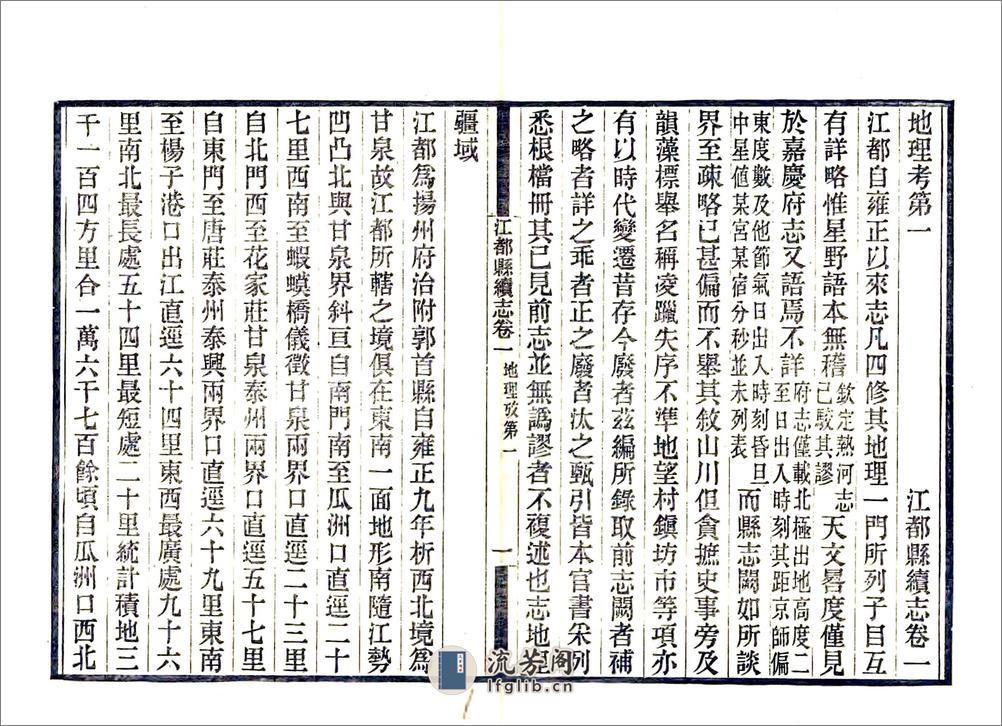 地理考第一　江都縣續志卷一
江都自雍正以來志凡四修其地理一門所列子目互
有詳略惟星野語本無稽欽定熱河志已駁其謬天文晷度僅見
於嘉慶府志又語焉不詳府志僅載北極出地高度二至日出入時刻其距京師偏
東度數及他節氣日出入時刻昏旦中星値某宮某宿分秒並未列表而縣志闕如所談
界至疎略已甚偏而不舉其敘山川但貪摭史事旁及
韻藻標舉名稱夌躐失序不準地望村鎭坊市等項亦
有以時代變遷昔存今廢者茲編所錄取前志闕者補
之略者詳之乖者正之廢者汰之甄引皆本官書采列
悉根檔冊其已見前志並無譌謬者不複述也志地
江都縣續志卷一　地理攷第一　一
疆域
江都爲揚州府治附郭首縣自雍正九年析西北境爲
甘泉故江都所轄之境俱在東南一面地形南隨江勢
凹凸北與甘泉界斜亘自南門南至瓜洲口直逕二十
七里西南至蝦蟆橋儀徵甘泉兩界口直逕二十三里
自北門西至花家莊甘泉泰州兩界口直逕五十七里
自東門至唐莊泰州泰興兩界口直逕六十九里東南
至楊子港口出江直逕六十四里東西最廣處九十六
里南北最長處五十四里最短處二十里統計積地三
千一百四方里合一萬六千七百餘頃自瓜洲口西北
流芳閣
lfglib.cn